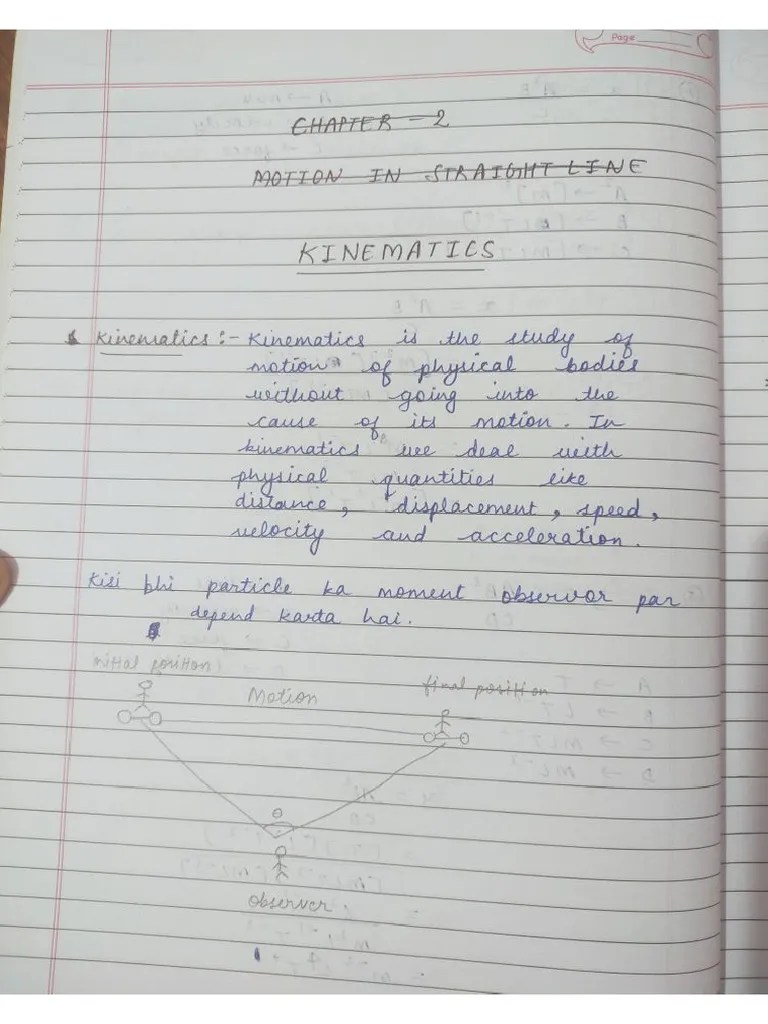 Page
CHAPTER - 2
MOTION IN STRAIGHT LINE
KINEMATICS
Kinematics :- Kinematics is the study of
motion of physical bodies
without going into the
cause of its motion. In
kinematics we deal with
physical quantities like
distance, displacement, speed,
velocity and acceleration.
Kisi bhi particle ka moment observor par
depend karta hai.
initial position
Motion
final position
θ
observer